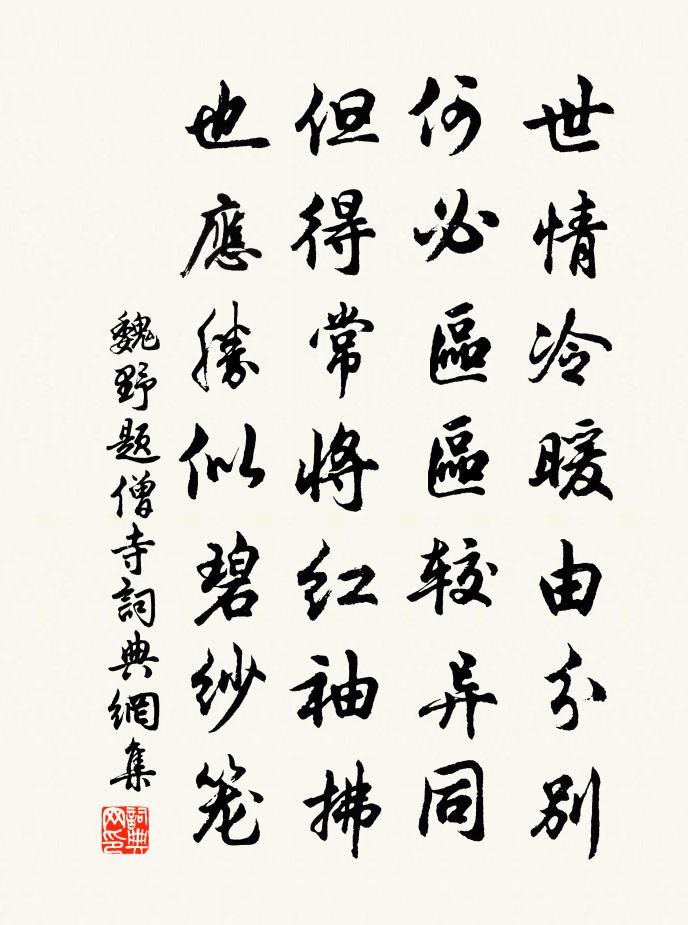 世情冷暖由分别
何必區區较异同
但得常将红袖拂
也應勝似碧纱笼
魏野题僧寺詞典網集
詞典网印